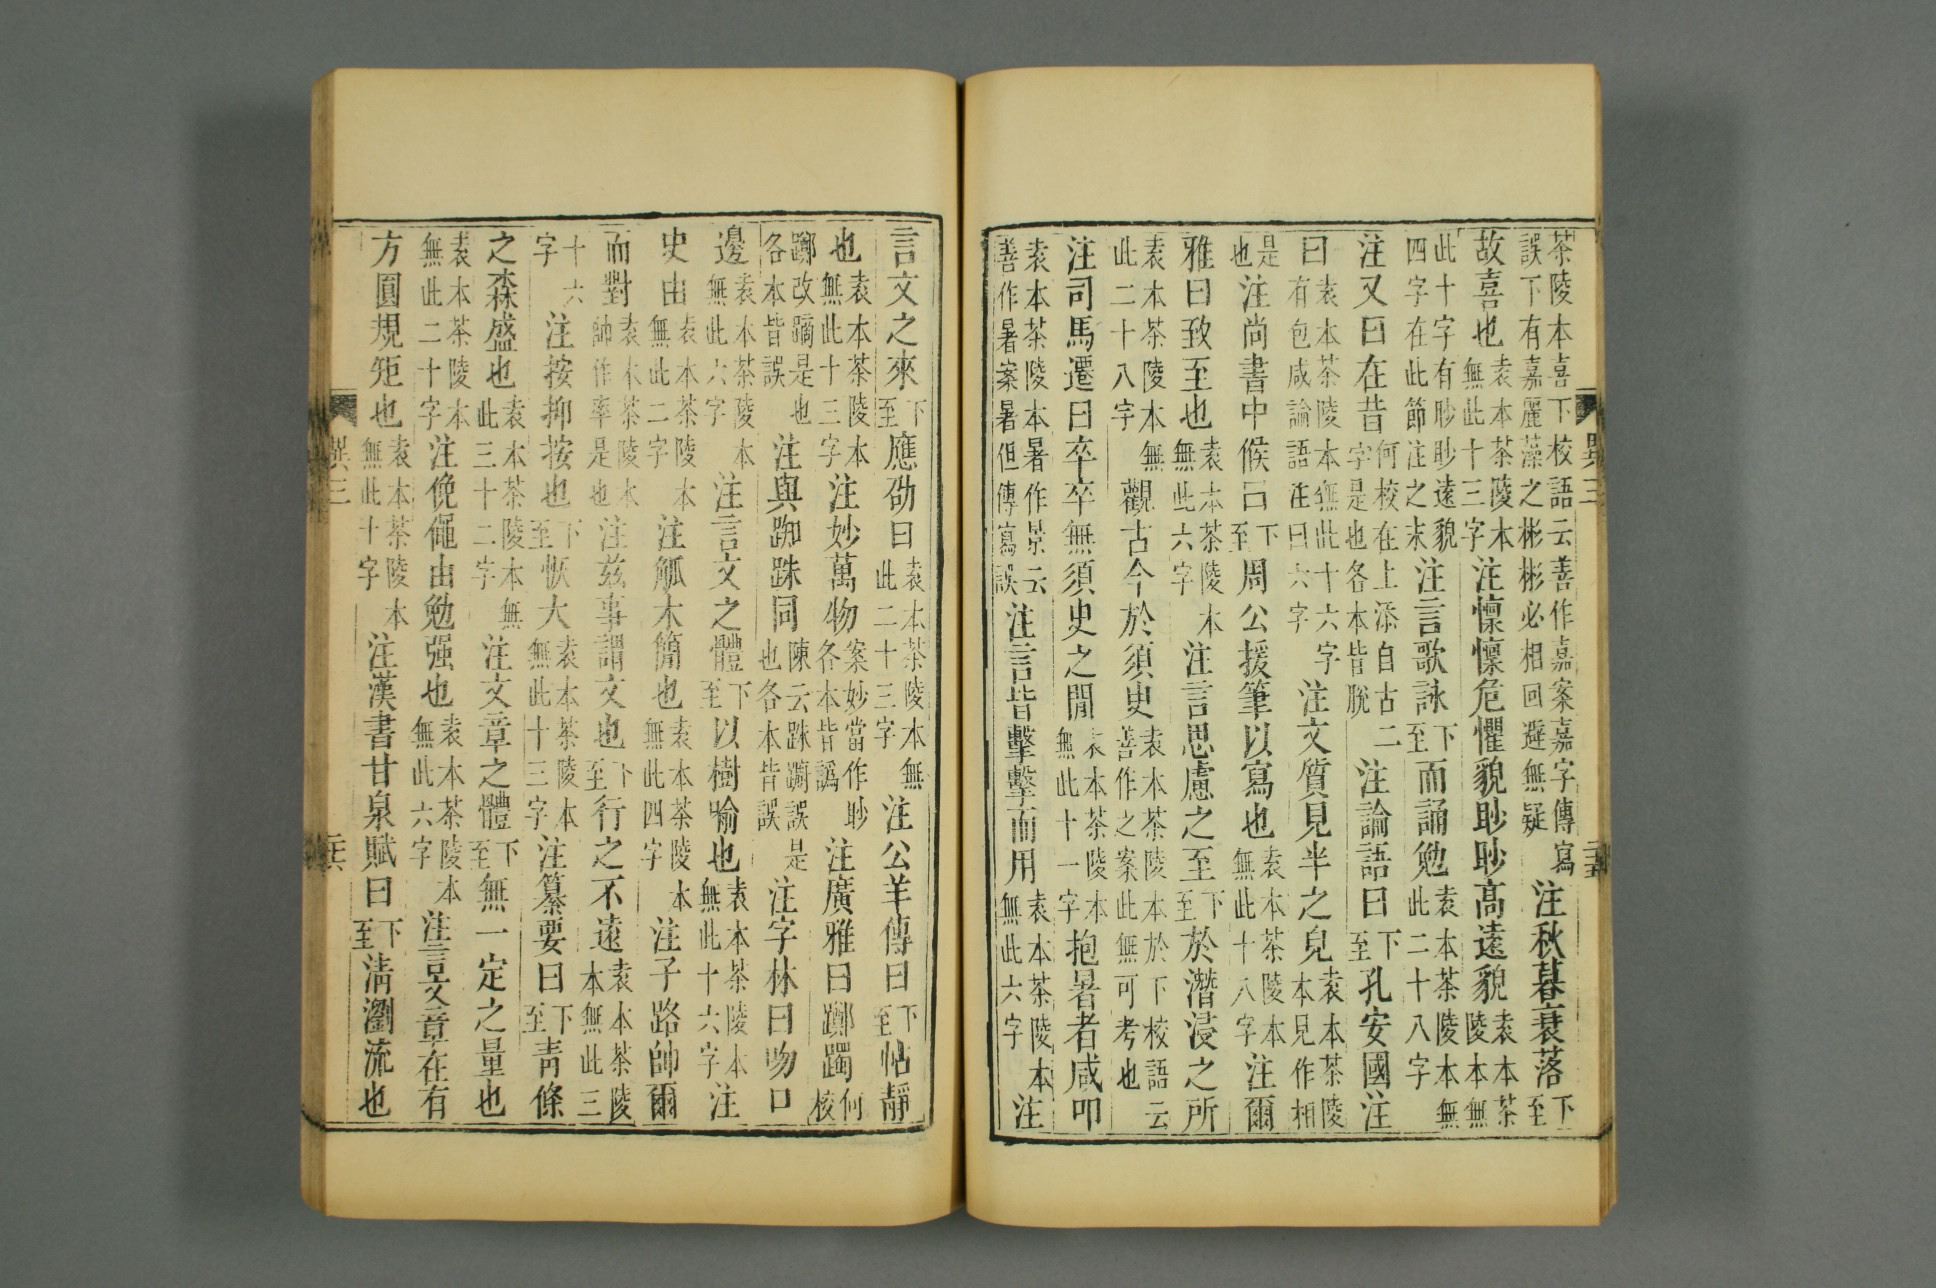 茶陵本喜下校語云善作嘉案嘉字傳寫誤下有嘉麗藻之彬彬必相回避無疑注秋暮衰落下至
故喜也袁本茶陵本無此十三字注懍懍危懼貌眇眇高遠貌袁本茶陵本無
此十字有眇眇遠貌四字在此節注之末注言歌詠下至而誦勉袁本茶陵本無此二十八字
注又曰在昔何校在上添自古二字是也各本皆脫注論語曰下至孔安國注
曰袁本茶陵本無此十六字有包咸論語注曰六字注文質見半之皃袁本茶陵本見作相
是也注尚書中候曰下至周公援筆以寫也袁本茶陵本無此十八字注爾
雅曰致至也袁本茶陵本無此六字注言思慮之至下至於潛浸之所
袁本茶陵本無此二十八字觀古今於須史袁本茶陵本於下校語云善作之案此無可考也
注司馬遷曰卒卒無須史之閒袁本茶陵本無此十一字抱暑者咸叩
袁本茶陵本暑作景云善作暑案暑但傳寫誤注言皆擊擊而用袁本茶陵本無此六字注
選三
言文之來下至應劭曰袁本茶陵本無此二十三字注公羊傳曰下至帖靜
也袁本茶陵本無此十三字注妙萬物案妙當作眇各本皆譌注廣雅曰躑躅何校
躑改蹢是也各本皆誤注與踟跦同陳云跦躕誤是也各本皆誤注字林曰吻口
邊袁本茶陵本無此六字注言文之體下至以樹喻也袁本茶陵本無此十六字注
史由袁本茶陵本無此二字注觚木簡也袁本茶陵本無此四字注子路帥爾
而對袁本茶陵本帥作率是也注茲事謂文也下至行之不遠袁本茶陵本無此三
十六字注按抑按也下至恢大袁本茶陵本無此十三字注纂要曰下至青條
之森盛也袁本茶陵本無此三十二字注文章之體下至無一定之量也
袁本茶陵本無此二十字注俛僶由勉强也袁本茶陵本無此六字注言文章在有
方圓規矩也袁本茶陵本無此十字注漢書甘泉賦曰下至清瀏流也
選三